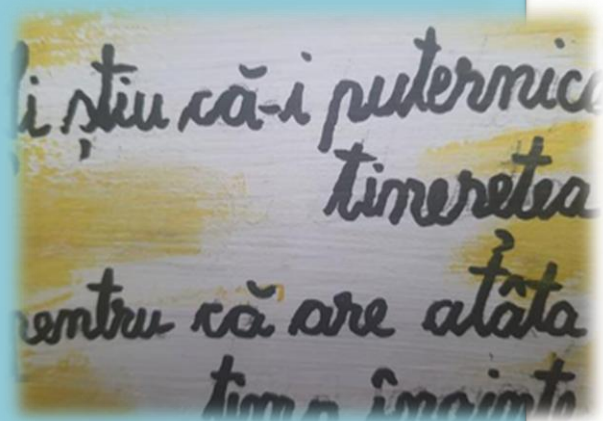 și știu că-i puternică
tinerețea
pentru că are atâta
timp înainte